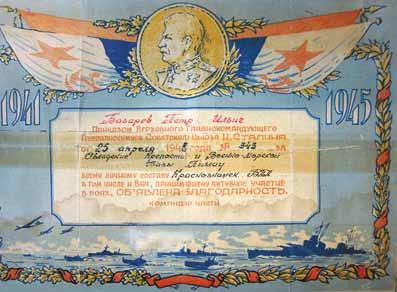 1941
1945
Базаров Петр Ильич
Приказом Верховного Главнокомандующего
Генералиссимуса Советского Союза И. Сталина
от 25 апреля 194 года № 343 за
Овладение Крепости и Военно-Морской
Базы Пиллау
всему личному составу Краснознамен.
в том числе и Вам, принимавшему активное участие
в боях, ОБ'ЯВЛЕНА БЛАГОДАРНОСТЬ.
командир части